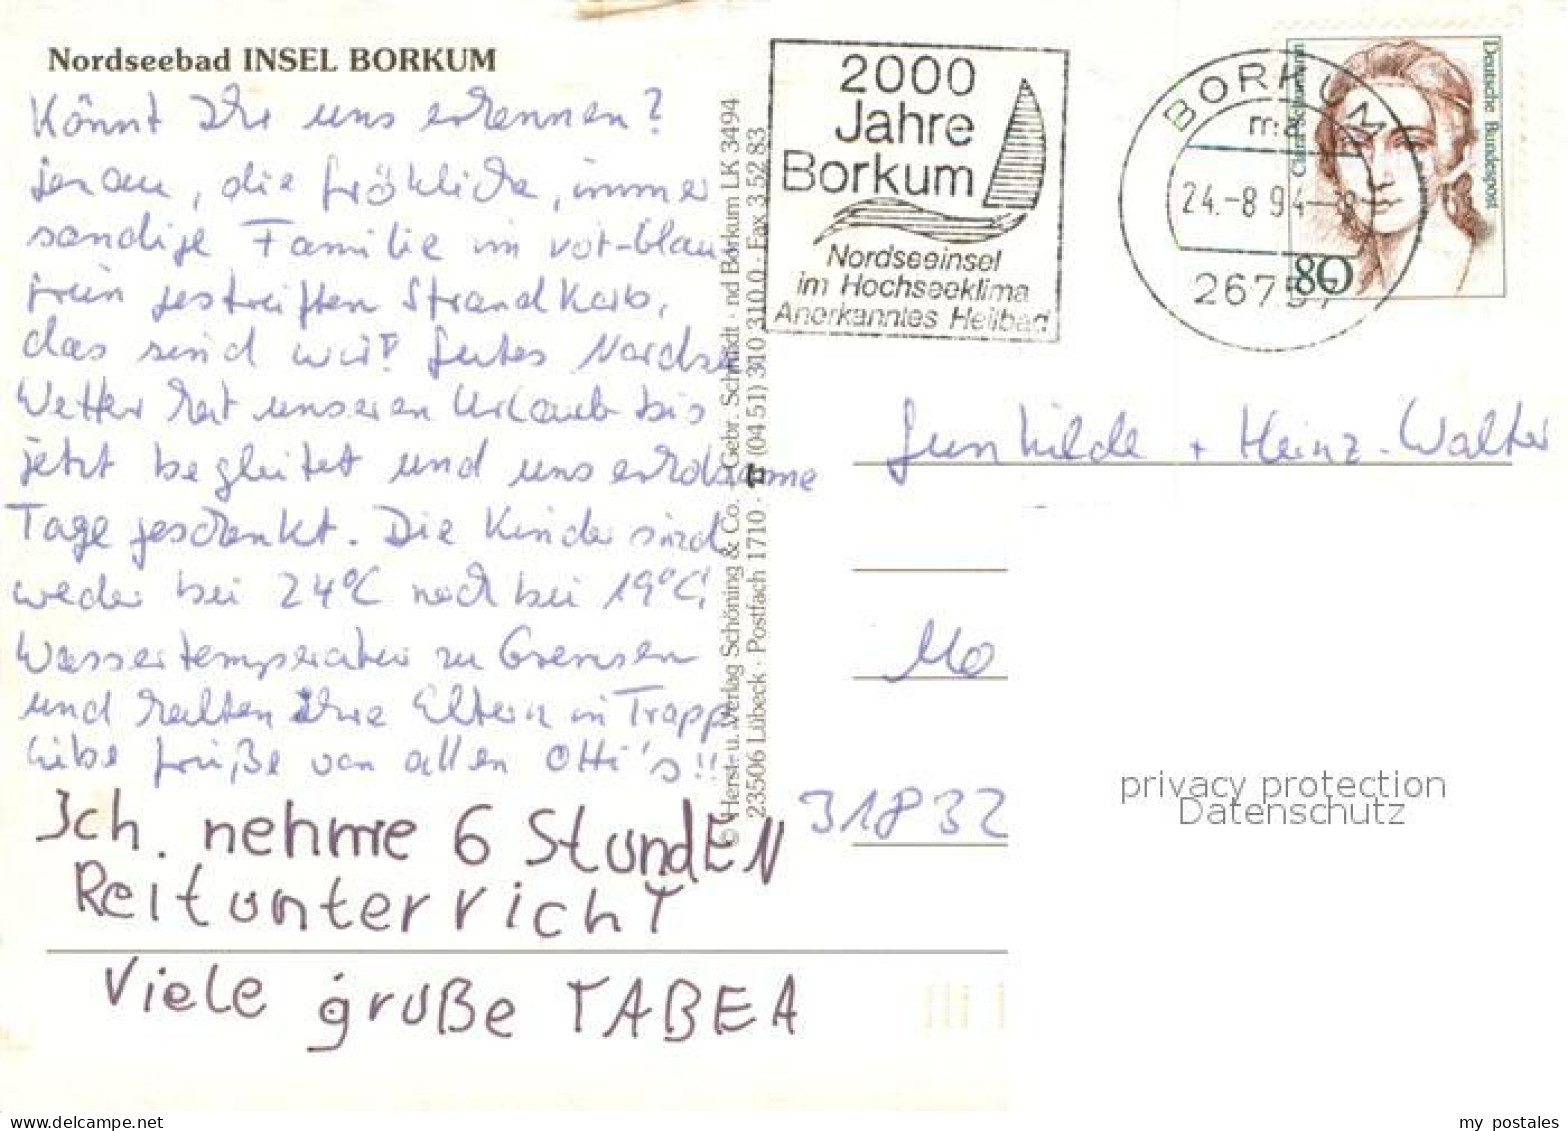 Nordseebad INSEL BORKUM
Könnt Ihr uns erkennen?
genau, die fröhliche, immer
sandige Familie im rot-blau
grün gestreiften Strandkorb,
das sind wir! Gutes Nordsee
Wetter hat unseren Urlaub bis
jetzt begleitet und uns erholsame
Tage geschenkt. Die Kinder sind
weder bei 24°C noch bei 19°C
Wassertemperatur zu bremsen
und halten ihre Eltern in Trapp
Liebe Grüße von allen Otti's!!
Ich nehme 6 StundEN
ReitunterrichT
Viele gruße TABEA
© Herst. u. Verlag Schöning & Co. · Gebr. Schmidt · nd Borkum LK 3494
23506 Lübeck · Postfach 1710 · ☎ (04 51) 310 310.0 · Fax 3 52 83
2000
Jahre
Borkum
Nordseeinsel
im Hochseeklima
Anerkanntes Heilbad
BORKUM
24.-8.94-8
26757
Clara Schumann
Deutsche Bundespost
80
Gunhilde + Heinz-Walter
31832
privacy protection
Datenschutz
my postales